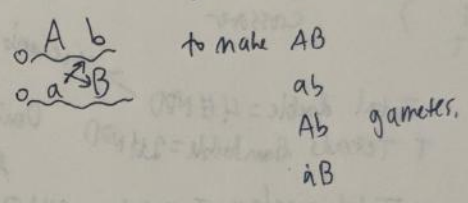 A b to make AB
a B ab
Ab gametes.
aB